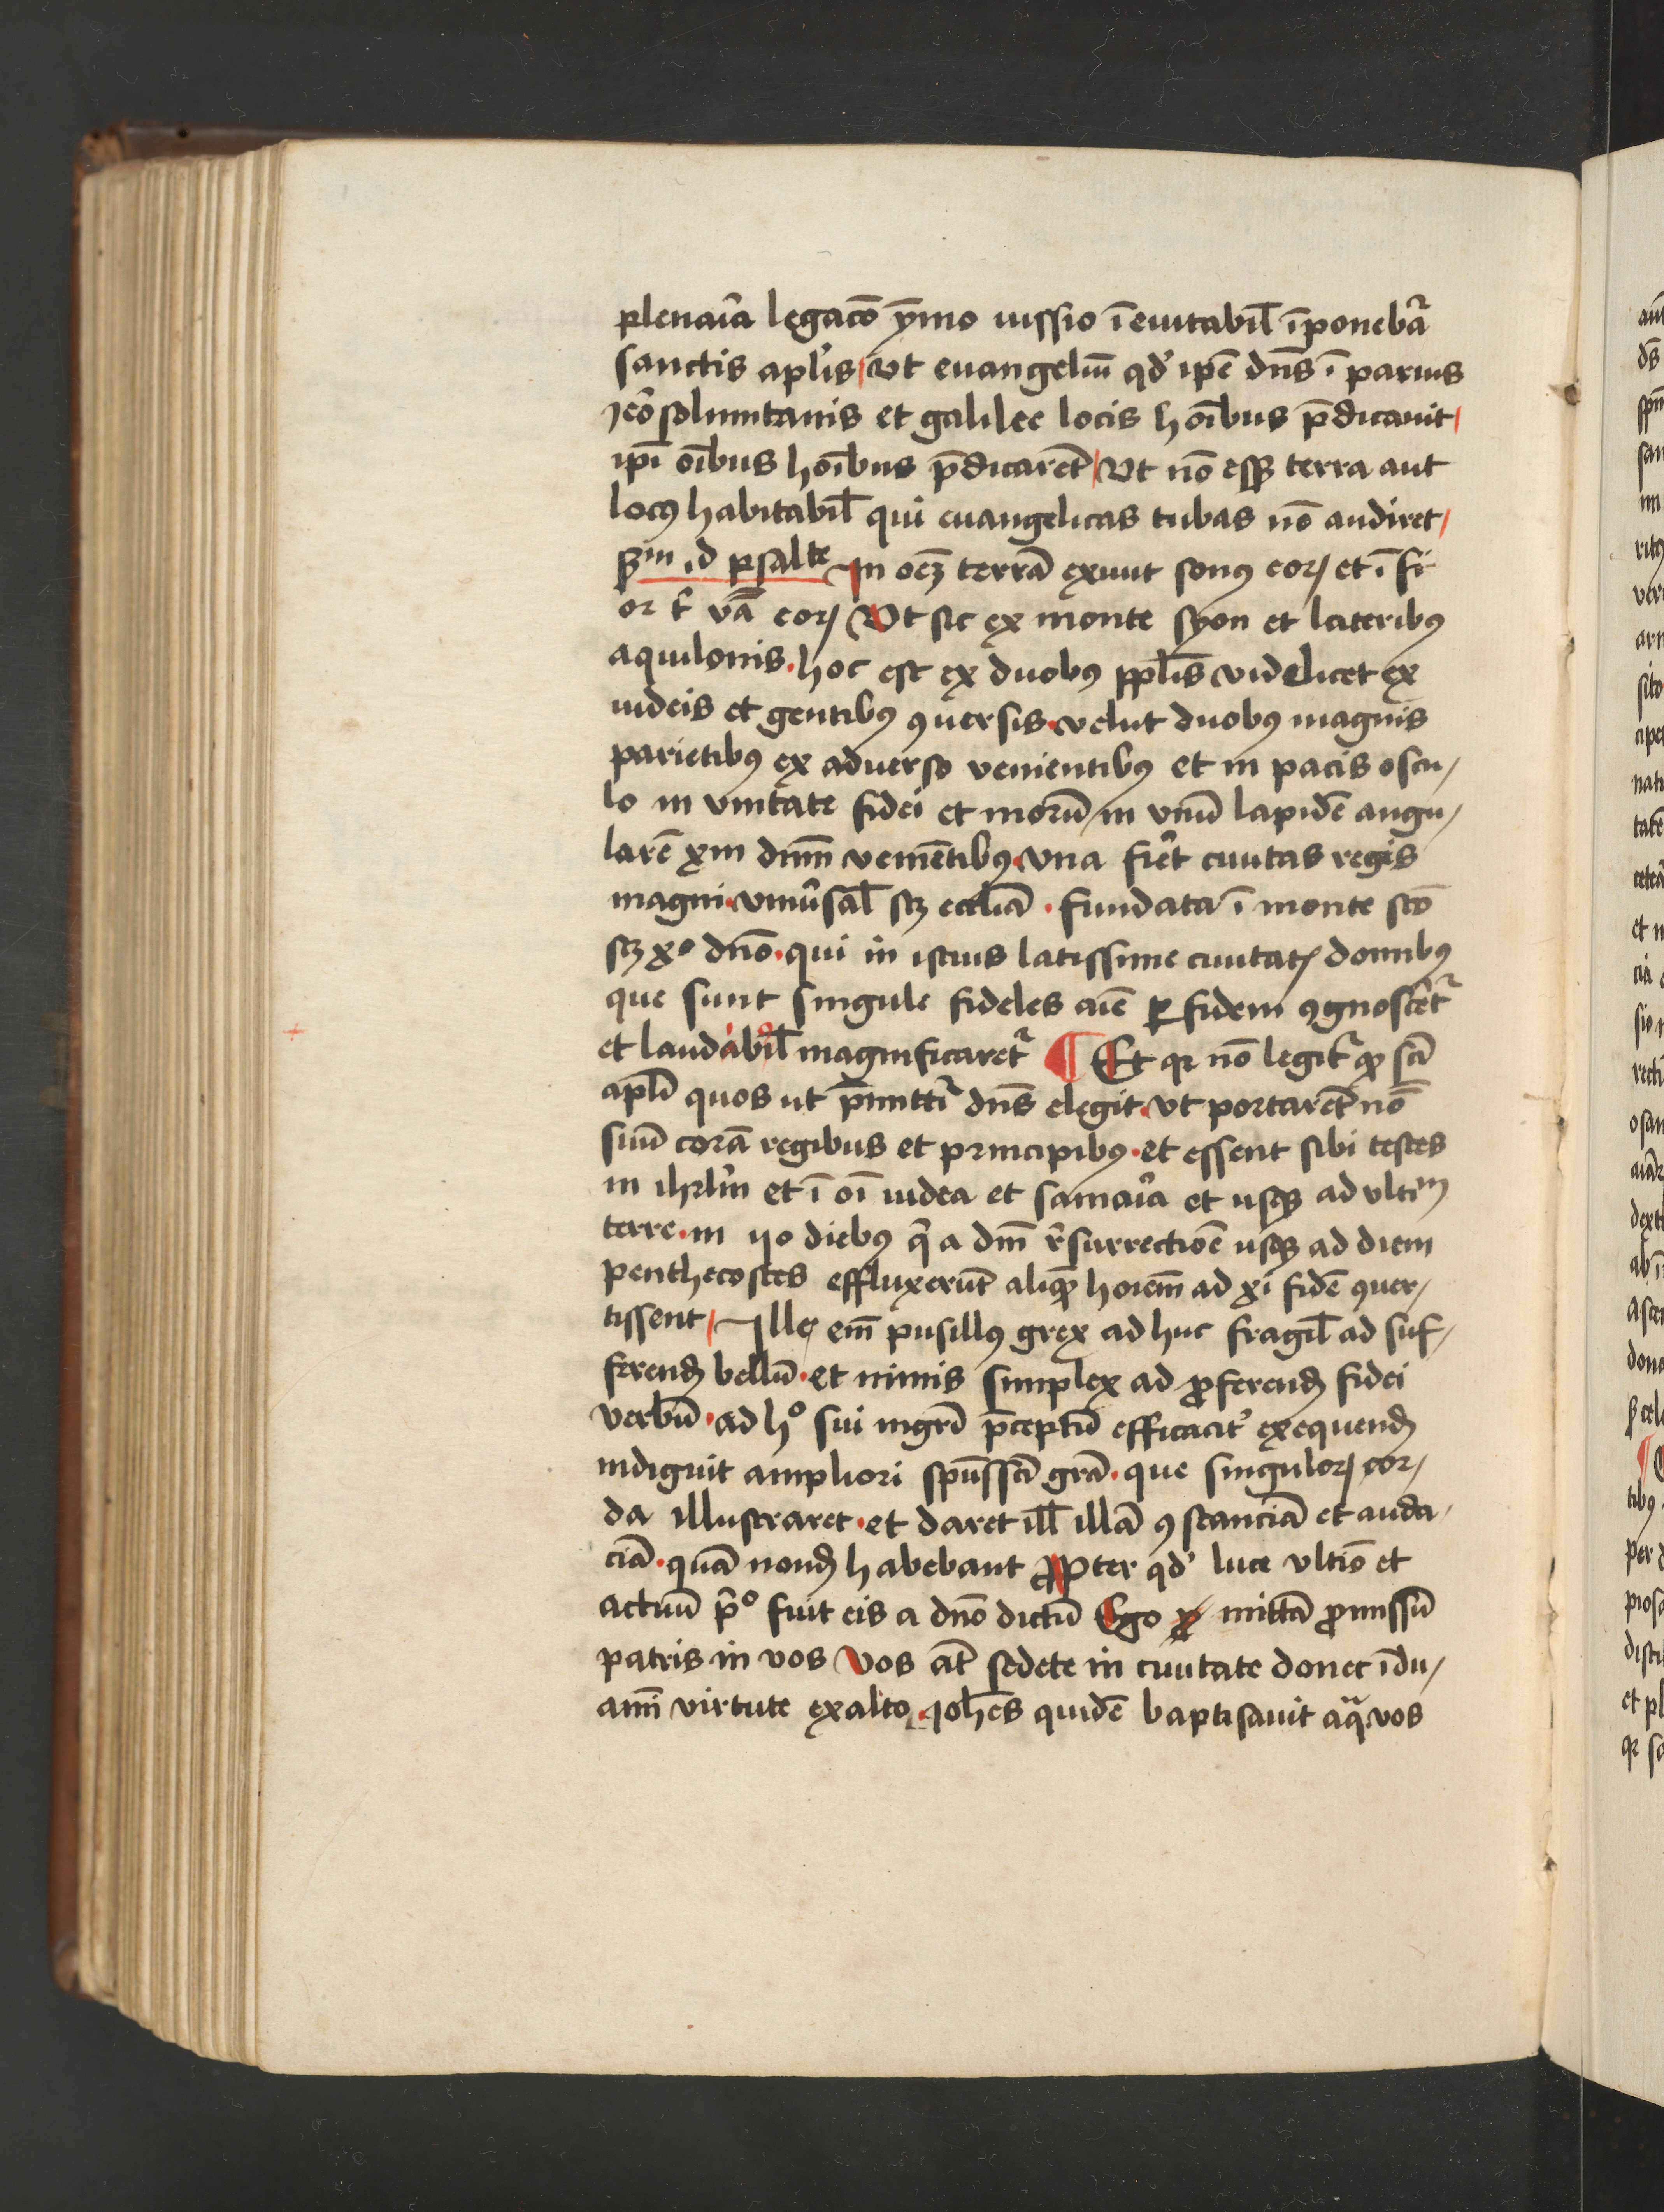 plenaīa legacōe ȳmo iussio īeuitabil̄ īponebat᷑
sanctis apl̄is / Vt euangeliū qd' ip̄e dn̄s ī paruis
ieȓosolimitanis et galilee locis hoībus p̄dicauit /
ip̄i oībus hoībus p̄dicarēt / Vt nō esset terra aut
locꝰ habitabil̄ qui euangelicas tubas nō audiret /
Scdm id psalte In oēm terrā exiuit sonꝰ eorꝝ et ī fi
or t̄ v̄a eorꝝ Vt sic ex monte syon et lateribꝰ
aquilonis · hoc est ex duobꝰ pplīs videlicet ex
iudeis et gentibꝰ ꝯuersis · velut duobꝰ magnis
parietibꝰ ex aduerso venientibꝰ et in pacis oscu /
lo in vnitate fidei et morū / in vnū lapidē angu /
larē xm dnm̄ veniētibꝰ · vna fieret ciuitas regis
magni · vniuersal̄ scꝫ eccl̄iā · fundata ī monte scō
scꝫ x° dn̄o · qui in istius latissime ciuitatꝭ domibꝰ
que sunt singule fideles aīe ꝑ fidem ꝯgnoscēt᷑
et laudabil̄ magnificaret᷑ ¶ Et qꝛ nō legit᷑ qꝫ scī
apl̄i quos ut p̄mittit᷑ dn̄s elegit · vt portarēt nō
suū corā regibus et principibꝰ · et essent sibi testes
in ihrl̄m et ī oī iudea et samaīa et usqꝫ ad vltim̄
terre · in 40 diebꝰ q̄ a dm̄ r̄surrectiōe usqꝫ ad diem
penthecostes effluxerūt aliquē hoīem ad xī fidē ꝯuer /
tissent / Ille em̄ pusillꝰ grex adhuc fragil̄ ad suf /
ferendꝫ bellū · et nimis simplex ad ꝓferendꝫ fidei
verbū · ad h° sui mgr̄i p̄ceptū efficacit᷑ exequendꝫ
indiguit ampliori spūssctī grā · que singulorꝫ cor /
da illustraret · et daret ill̄ illā ꝯstanciā et auda /
ciā · quā nondꝫ habebant Propter qd' luce vltīo et
actuū p̄° fuit eis a dn̄o dictū Ego mittā ꝓmissū
patris in vos Vos at̄ sedete in ciuitate donec īdu /
amī virtute ex alto · ioh̄es quidē baptisauit aq̄ · vos